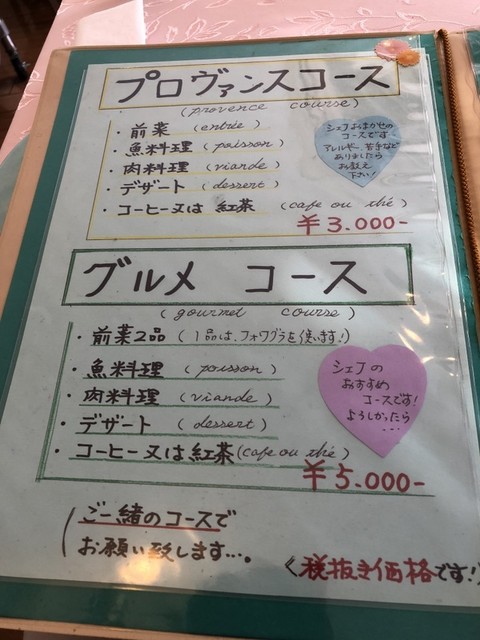 プロヴァンスコース
(provence course)
・前菜 (entrée)
・魚料理 (poisson)
・肉料理 (viande)
・デザート (dessert)
・コーヒー又は 紅茶 (cafe ou thé)
¥3.000-
シェフおまかせの
コースです
アレルギー、苦手など
ありましたら
お教え
下さい!
グルメ コース
(gourmet course)
・前菜2品 (1品は、フォワグラを使います!)
・魚料理 (poisson)
・肉料理 (viande)
・デザート (dessert)
・コーヒー又は紅茶(cafe ou thé)
¥5.000-
シェフの
おすすめ
コースです!
よろしかったら
...
ご一緒のコースで
お願い致します...。
《税抜き価格です!